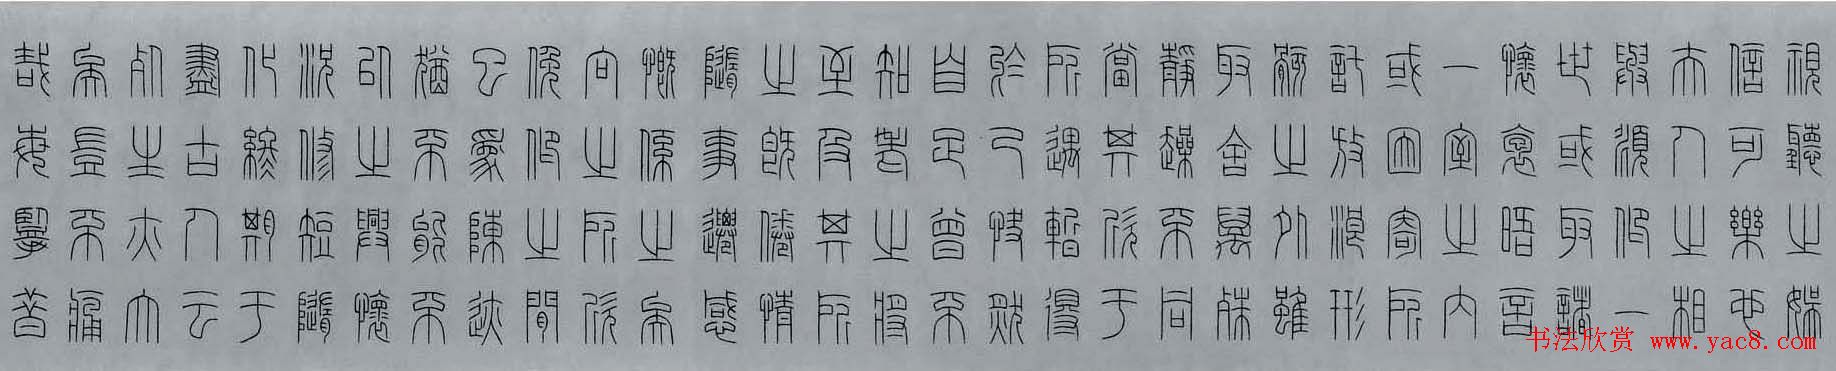 視聽之娛
信可樂也
夫人之相
與俯仰一
世或取諸
懷抱晤言
一室之內
或因寄所
託放浪形
骸之外雖
取舍萬殊
靜躁不同
當其欣于
所遇暫得
於己快然
自足曾不
知老之將
至及其所
之既倦情
隨事遷感
慨係之矣
向之所欣
俛仰之間
已為陳迹
猶不能不
以之興懷
況修短隨
化終期于
盡古人云
死生亦大
矣豈不痛
哉每攬昔
书法欣赏 www.yac8.com